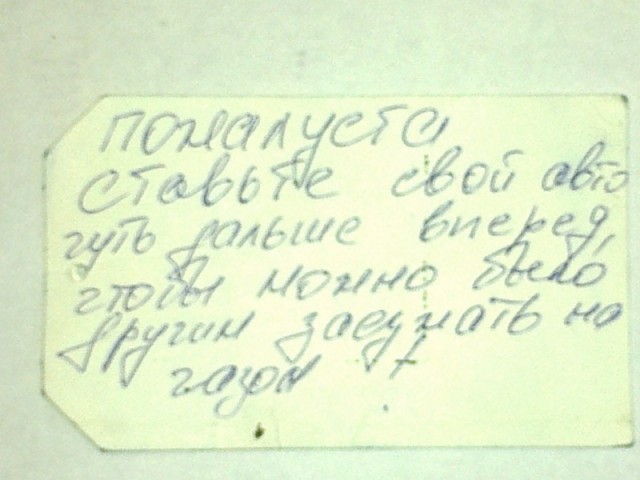 пожалуста
ставьте свой авто
чуть дальше вперед,
чтобы можно было
другим заезжать на
газон